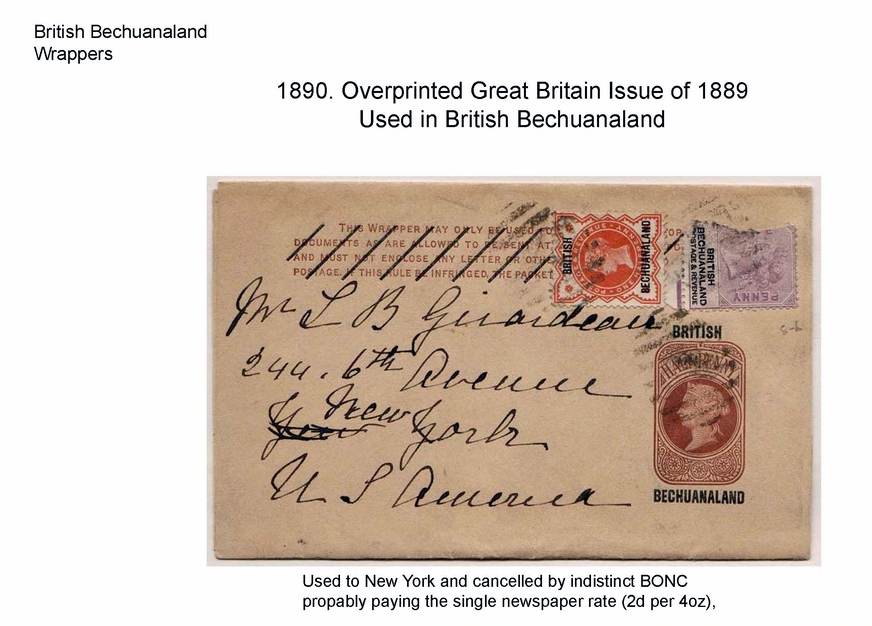 British Bechuanaland
Wrappers
1890. Overprinted Great Britain Issue of 1889
Used in British Bechuanaland
THIS WRAPPER MAY ONLY BE USED TO
DOCUMENTS AS ARE ALLOWED TO BE SENT AT
AND MUST NOT ENCLOSE ANY LETTER OR OTHE
POSTAGE. IF THIS RULE BE INFRINGED, THE PACKET
OR
BRITISH
BECHUANALAND
BRITISH
BECHUANALAND
POSTAGE & REVENUE
PENNY
Mr L B Girardeau
244. 6th Avenue
New York
U S America
BRITISH
HALFPENNY
BECHUANALAND
Used to New York and cancelled by indistinct BONC
propably paying the single newspaper rate (2d per 4oz),